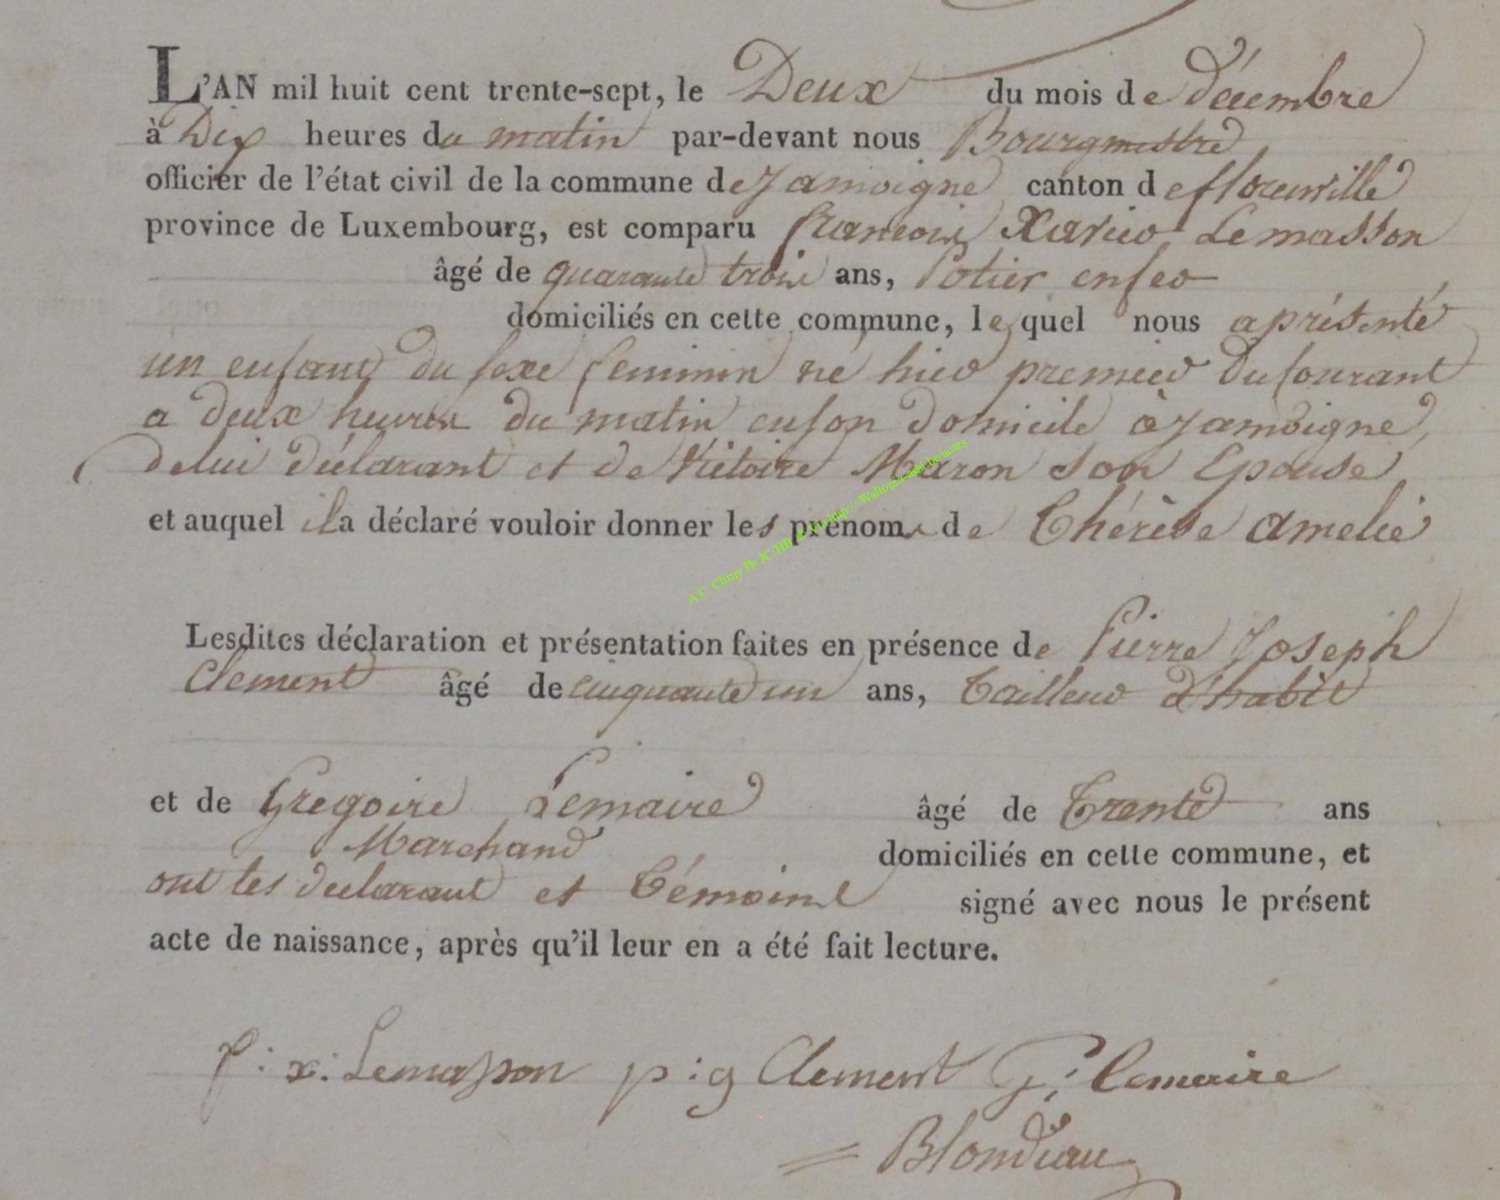 L'AN mil huit cent trente-sept, le Deux du mois de décembre
à Dix heures du matin par-devant nous Bourgmestre
officier de l'état civil de la commune de Jamoigne canton de florenville
province de Luxembourg, est comparu francois Xavier Lemasson
âgé de quarante trois ans, Potier en fer
domiciliés en cette commune, lequel nous a présenté
un enfant du sexe feminin né hier premier du Courant
a deux heures du matin en son domicile à Jamoigne,
de lui déclarant et de Victoire Maron son Epouse
et auquel il a déclaré vouloir donner les prénoms de Thérèse amelie
Lesdites déclaration et présentation faites en présence de Pierre Joseph
Clement âgé de cinquante un ans, Tailleur d'habit
et de Gregoire Lemaire âgé de Trente ans
Marchand domiciliés en cette commune, et
ont les declarant et Témoins signé avec nous le présent
acte de naissance, après qu'il leur en a été fait lecture.
f: x: Lemasson p:j Clement G: lemaire
Blondiau
A.C. Chiny Ph JC